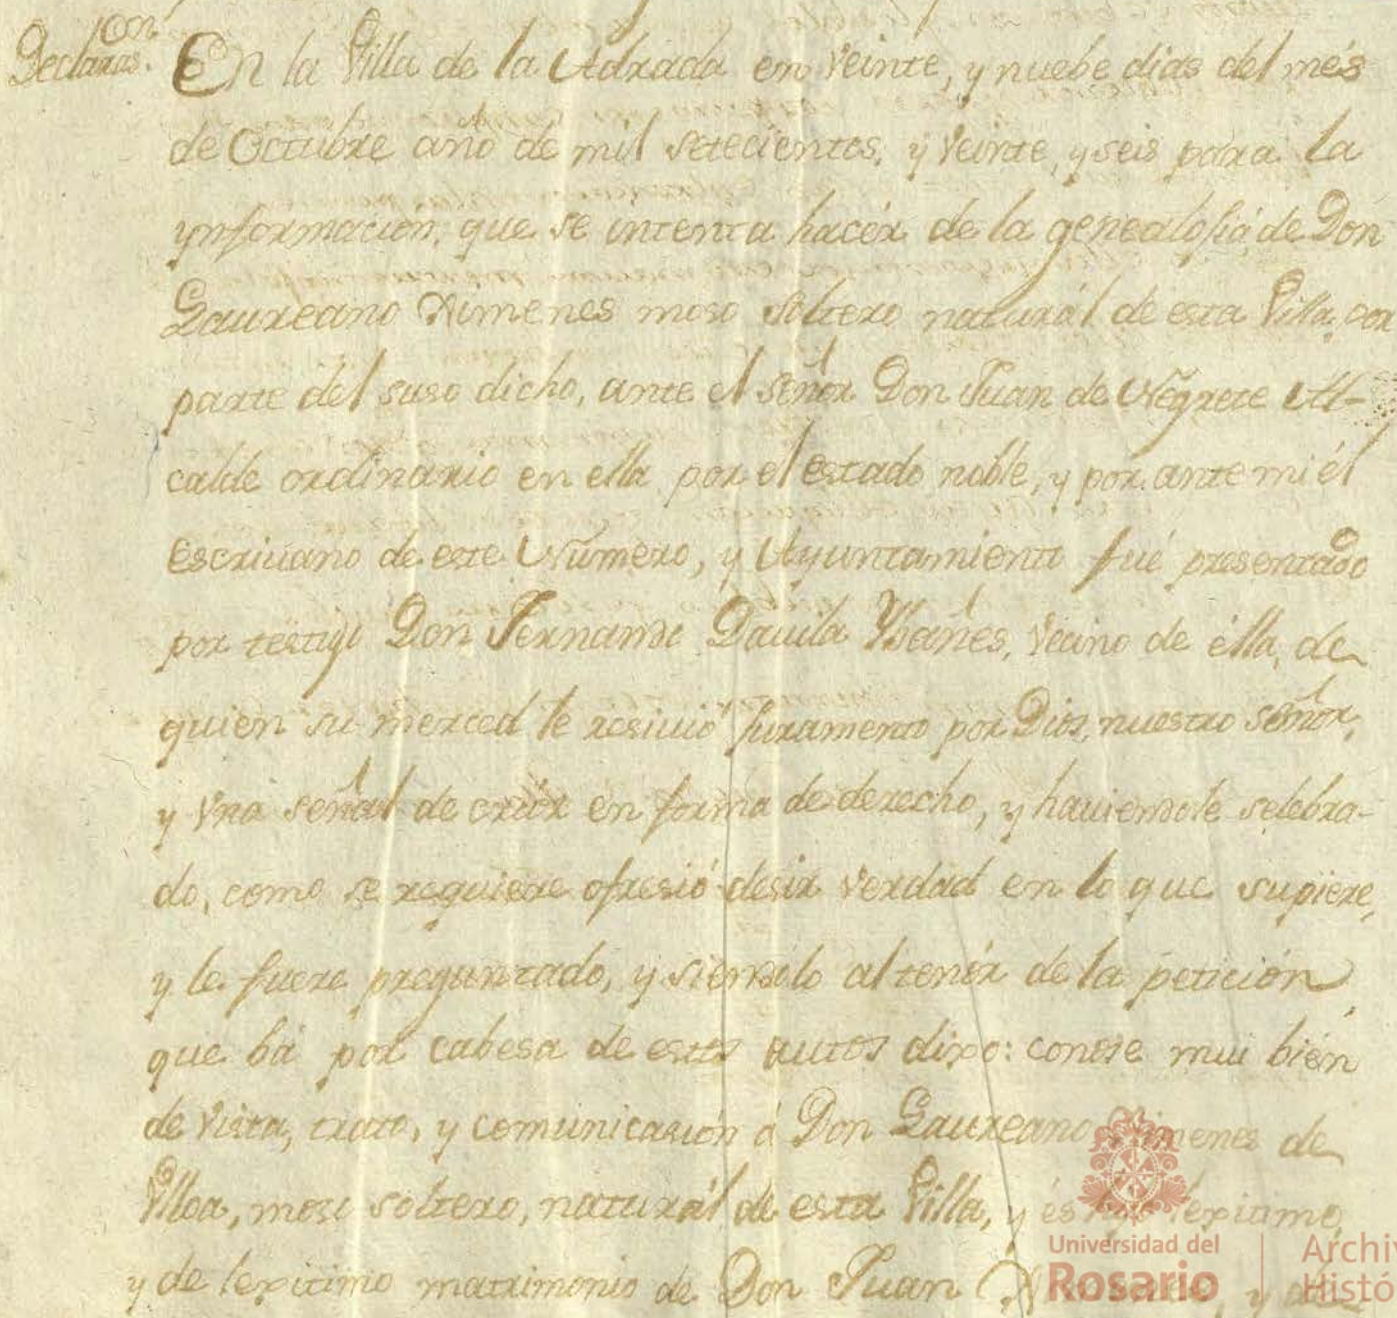 Declaras.con En la Villa de la Adrada en veinte, y nuebe dias del més
de Octubre año de mil setecientos, y veinte, y seis para la
ynformacion, que se intenta hacér de la genealogia de Don
Laureano Ximenes moso soltero naturál de esta Villa, por
parte del suso dicho, ante el señor Don Juan de Negrete Al-
calde ordinario en ella por el estado noble, y por ante mi él
escriuano de este Número, y Ayuntamiento fué presentado
por testigo Don Fernando Dauila Ybañes, vecino de élla, de
quien su merced le resiuió juramento por Dios, nuestro señor,
y vna señal de crúz en forma de derecho, y hauiendole selebra-
do, como se requiere ofresió desir verdad en lo que supiere,
y le fuere preguntado, y siendolo al tenór de la petición
que bá por cabesa de estos autos dixo: conose mui bién
de vista, trato, y comunicasión á Don Laureano Ximenes de
Vlloa, moso soltero, naturál de esta Villa, y és hijo lexitimo,
y de lexitimo matrimonio de Don Juan Ximenes, y de
Universidad del
Rosario
Archiv
Histó